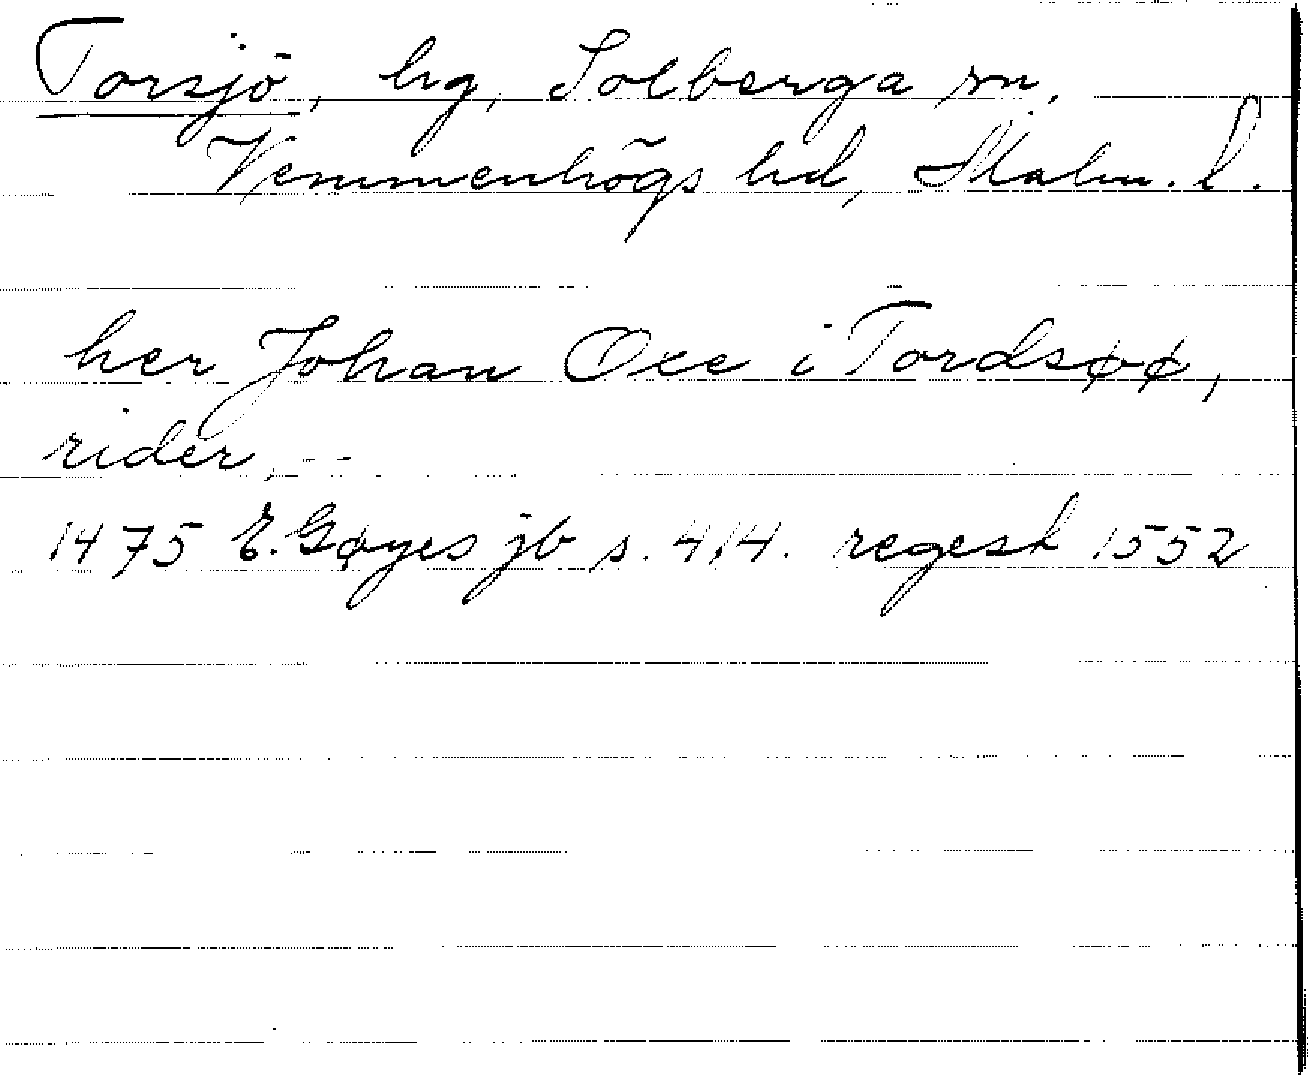 Torsjö, hg, Solberga sn,
Vemmenhögs hd, Malm. l.
her Johan Oxe i Tordsøø,
rider, --
1475 E. Gøyes jb s. 414. regest 1552